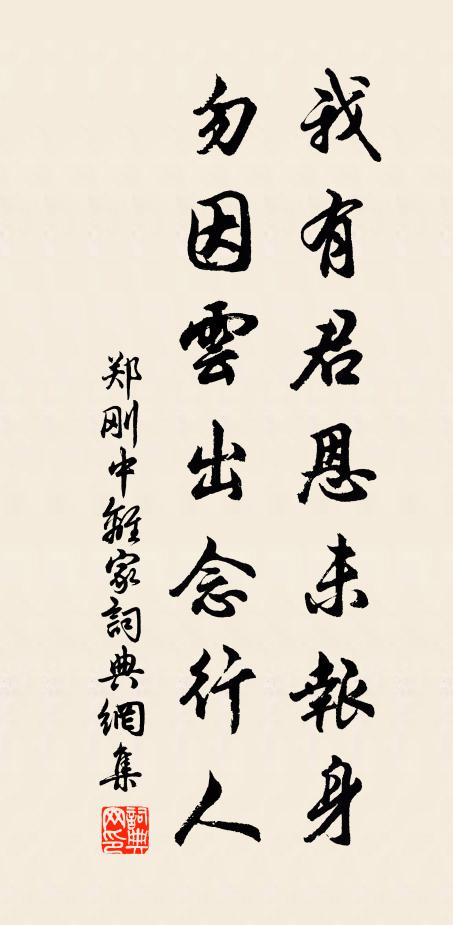 我有君恩未報身
勿因雲出念行人
郑刚中離家詞典網集
詞典網印